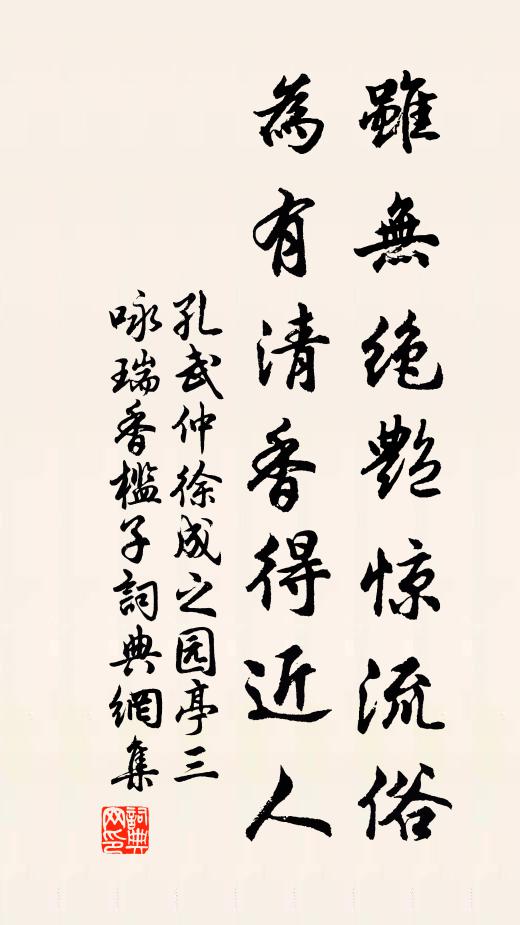 雖無絶艷惊流俗
為有清香得近人
孔武仲徐成之园亭三
咏瑞香檻子詞典網集
詞典
网印